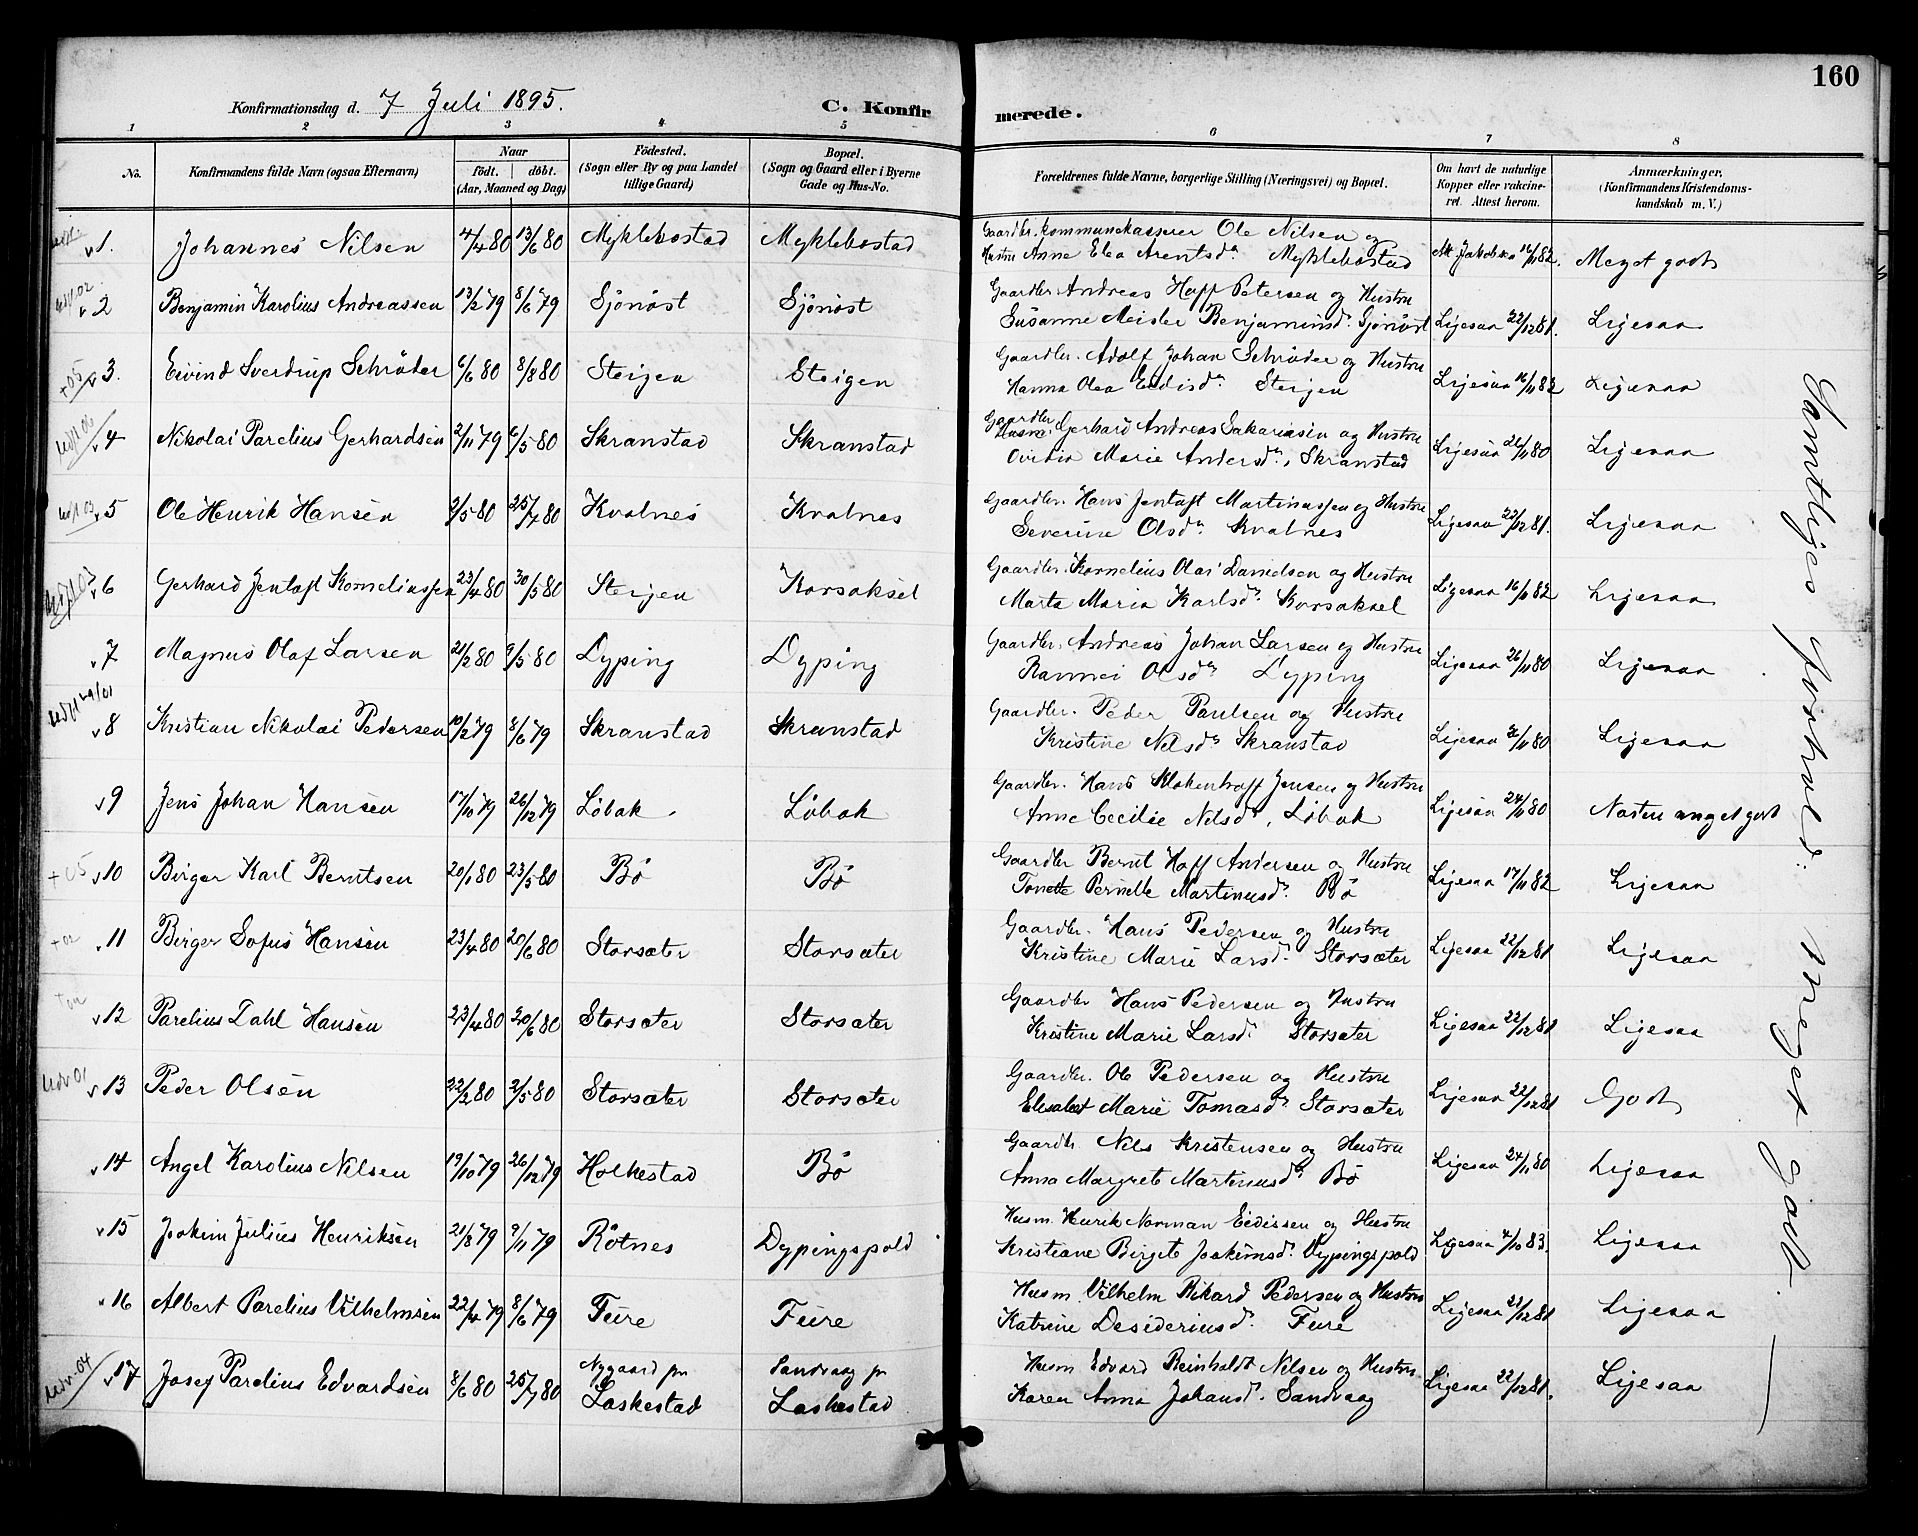 160
Konfirmationsdag d. 7 Juli 1895.
C. Konfirmerede.
1 2 3 4 5 6 7 8
No.
Konfirmandens fulde Navn (ogsaa Efternavn)
Naar
födt. döbt.
(Aar, Maaned og Dag)
Födested.
(Sogn eller By og paa Landet
tillige Gaard)
Bopæl.
(Sogn og Gaard eller i Byerne
Gade og Hus-No.
Forældrenes fulde Navne, borgerlige Stilling (Næringsvei) og Bopæl.
Om havt de naturlige
Kopper eller vakcine-
ret. Attest herom.
Anmærkninger.
(Konfirmandens Kristendoms-
kundskab m. V.)
1. Johannes Nilsen 4/4 80 13/6 80 Myklebostad Myklebostad
Gaardbr. kommunekasserer Ole Nilsen og
Hustru Anne Elea Arentsd. Myklebostad
Att. Jakobsen 16/11 82. Meget godt
udfl. 02 2 Benjamin Karolius Andreassen 13/2 79 8/6 79 Sjönöst Sjönöst
Gaardbr. Andreas Hoff Petersen og Hustru
Susanne Meisler Benjaminsd. Sjönöst
Ligesaa 22/12 81. Ligesaa
+05 3. Eivind Sverdrup Schröder 6/6 80 8/8 80 Steigen Steigen
Gaardbr. Adolf Johan Schröder og Hustru
Hanna Olea Eidisd. Steigen
Ligesaa 16/11 82 Ligesaa
4 Nikolai Parelius Gerhardsen 2/11 79 6/5 80 Skranstad Skranstad
Gaardbr. Gerhard Andreas Sakariasen og Hustru
Ovidia Marie Andersd., Skranstad
Ligesaa 26/11 80 Ligesaa
udfl 03 5 Ole Henrik Hansen 2/5 80 25/7 80 Kvalnes Kvalnes
Gaardbr. Hans Jentoft Martinussen og Hustru
Severine Olsd. Kvalnes
Ligesaa 22/12 81. Ligesaa
6 Gerhard Jentoft Korneliussen 23/4 80 30/5 80 Steigen Korsaksel
Gaardbr. Kornelius Olai Danielsen og Hustru
Marta Maria Karlsd. Korsaksel
Ligesaa 16/11 82 Ligesaa
7 Magnus Olaf Larsen 21/2 80 9/5 80 Dyping Dyping
Gaardbr. Andreas Johan Larsen og Hustru
Rannei Olsd. Dyping
Ligesaa 26/11 80 Ligesaa
8 Kristian Nikolai Pedersen 10/2 79 8/6 79 Skranstad Skranstad
Gaardbr. Peder Paulsen og Hustru
Kristine Nelsd. Skranstad
Ligesaa 80 Ligesaa
9 Jens Johan Hansen 17/10 79 26/12 79 Löbak Löbak
Gaardbr. Hans Klokenhoff Jensen og Hustru
Anne Cecilie Nelsd., Löbak
Ligesaa 24/11 80 Nasten meget godt
+05 10 Birger Karl Berntsen 20/1 80 23/5 80 Bö Bö
Gaardbr Bernt Hoff Andersen og Hustru
Tonette Pernelle Martinusd. Bö
Ligesaa 17/11 82 Ligesaa
11 Birger Sofus Hansen 23/4 80 20/6 80 Storsæter Storsæter
Gaardbr. Hans Pedersen og Hustru
Kristine Marie Larsd. Storsæter
Ligesaa 22/12 81 Ligesaa
12 Parelius Dahl Hansen 23/4 80 20/6 80 Storsæter Storsæter
Gaardbr Hans Pedersen og Hustru
Kristine Marie Larsd. Storsæter
Ligesaa 22/12 81 Ligesaa
udv 01 13 Peder Olsen 22/2 80 2/5 80 Storsæter Storsæter
Gaardbr. Ole Pedersen og Hustru
Elisabet Marie Tomasd. Storsæter
Ligesaa 22/12 81 Godt
14 Angel Karolius Nilsen 19/10 79 26/12 79 Holkestad Bö
Gaardbr. Nils Kristensen og Hustru
Anna Margrete Martinusd. Bö
Ligesaa 24/11 80 Ligesaa
15 Joakim Julius Henriksen 21/8 79 9/11 79 Rötnes Dypingspold
Husm. Henrik Norman Eidissen og Hustru
Kristiane Birgete Joakimsd. Dypingspold
Ligesaa 4/10 83. Ligesaa
16 Albert Parelius Vilhelmsen 22/4 79 8/6 79 Fure Fure
Husm. Vilhelm Rikard Pedersen og Hustru
Katrine Desideriusd. Fure
Ligesaa 22/12 81 Ligesaa
udv. 04 17 Josef Parelius Edvardsen 8/6 80 25/7 80 Nygaard pr Laskestad Sandvaag pr Laskestad
Husm Edvard Reinholdt Nilsen og Hustru
Karen Anna Johansd. Sandvaag
Ligesaa 22/12 81. Ligesaa
Samtliges Forhold: Meget godt.